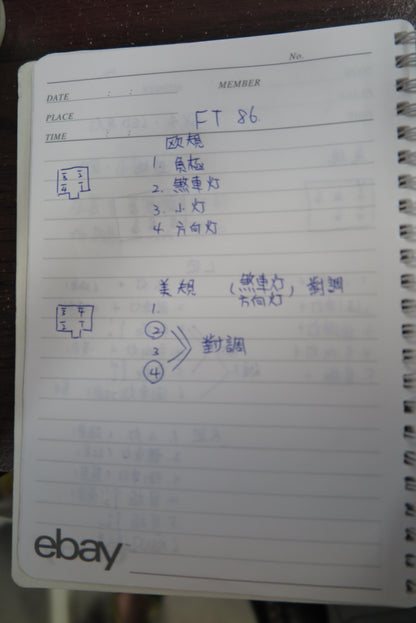 No.
DATE : :
MEMBER
PLACE
FT 86
TIME : :
欧規
1. 負極
2. 煞車灯
3. 小灯
4. 方向灯
美規 (煞車灯, 方向灯) 對調
1.
2
3
4
對調
ebay